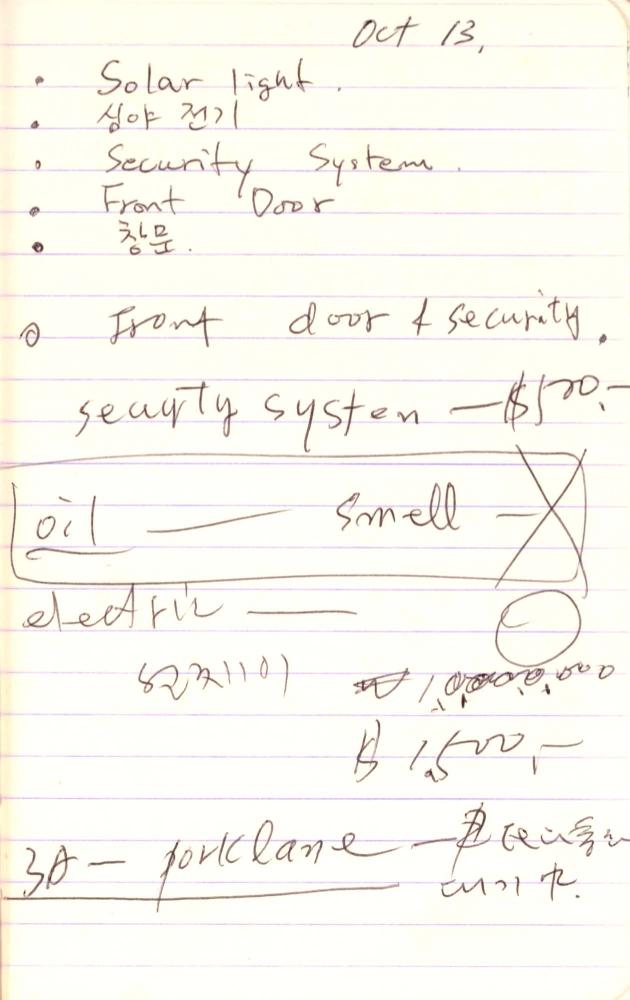 Oct 13,
• Solar light.
• 심야 전기
• Security System.
• Front Door
• 창문.
◎ Front door & security.
security system — $500.-
oil — smell — X
electric — O
$ 1,500.-
3A — porklane —